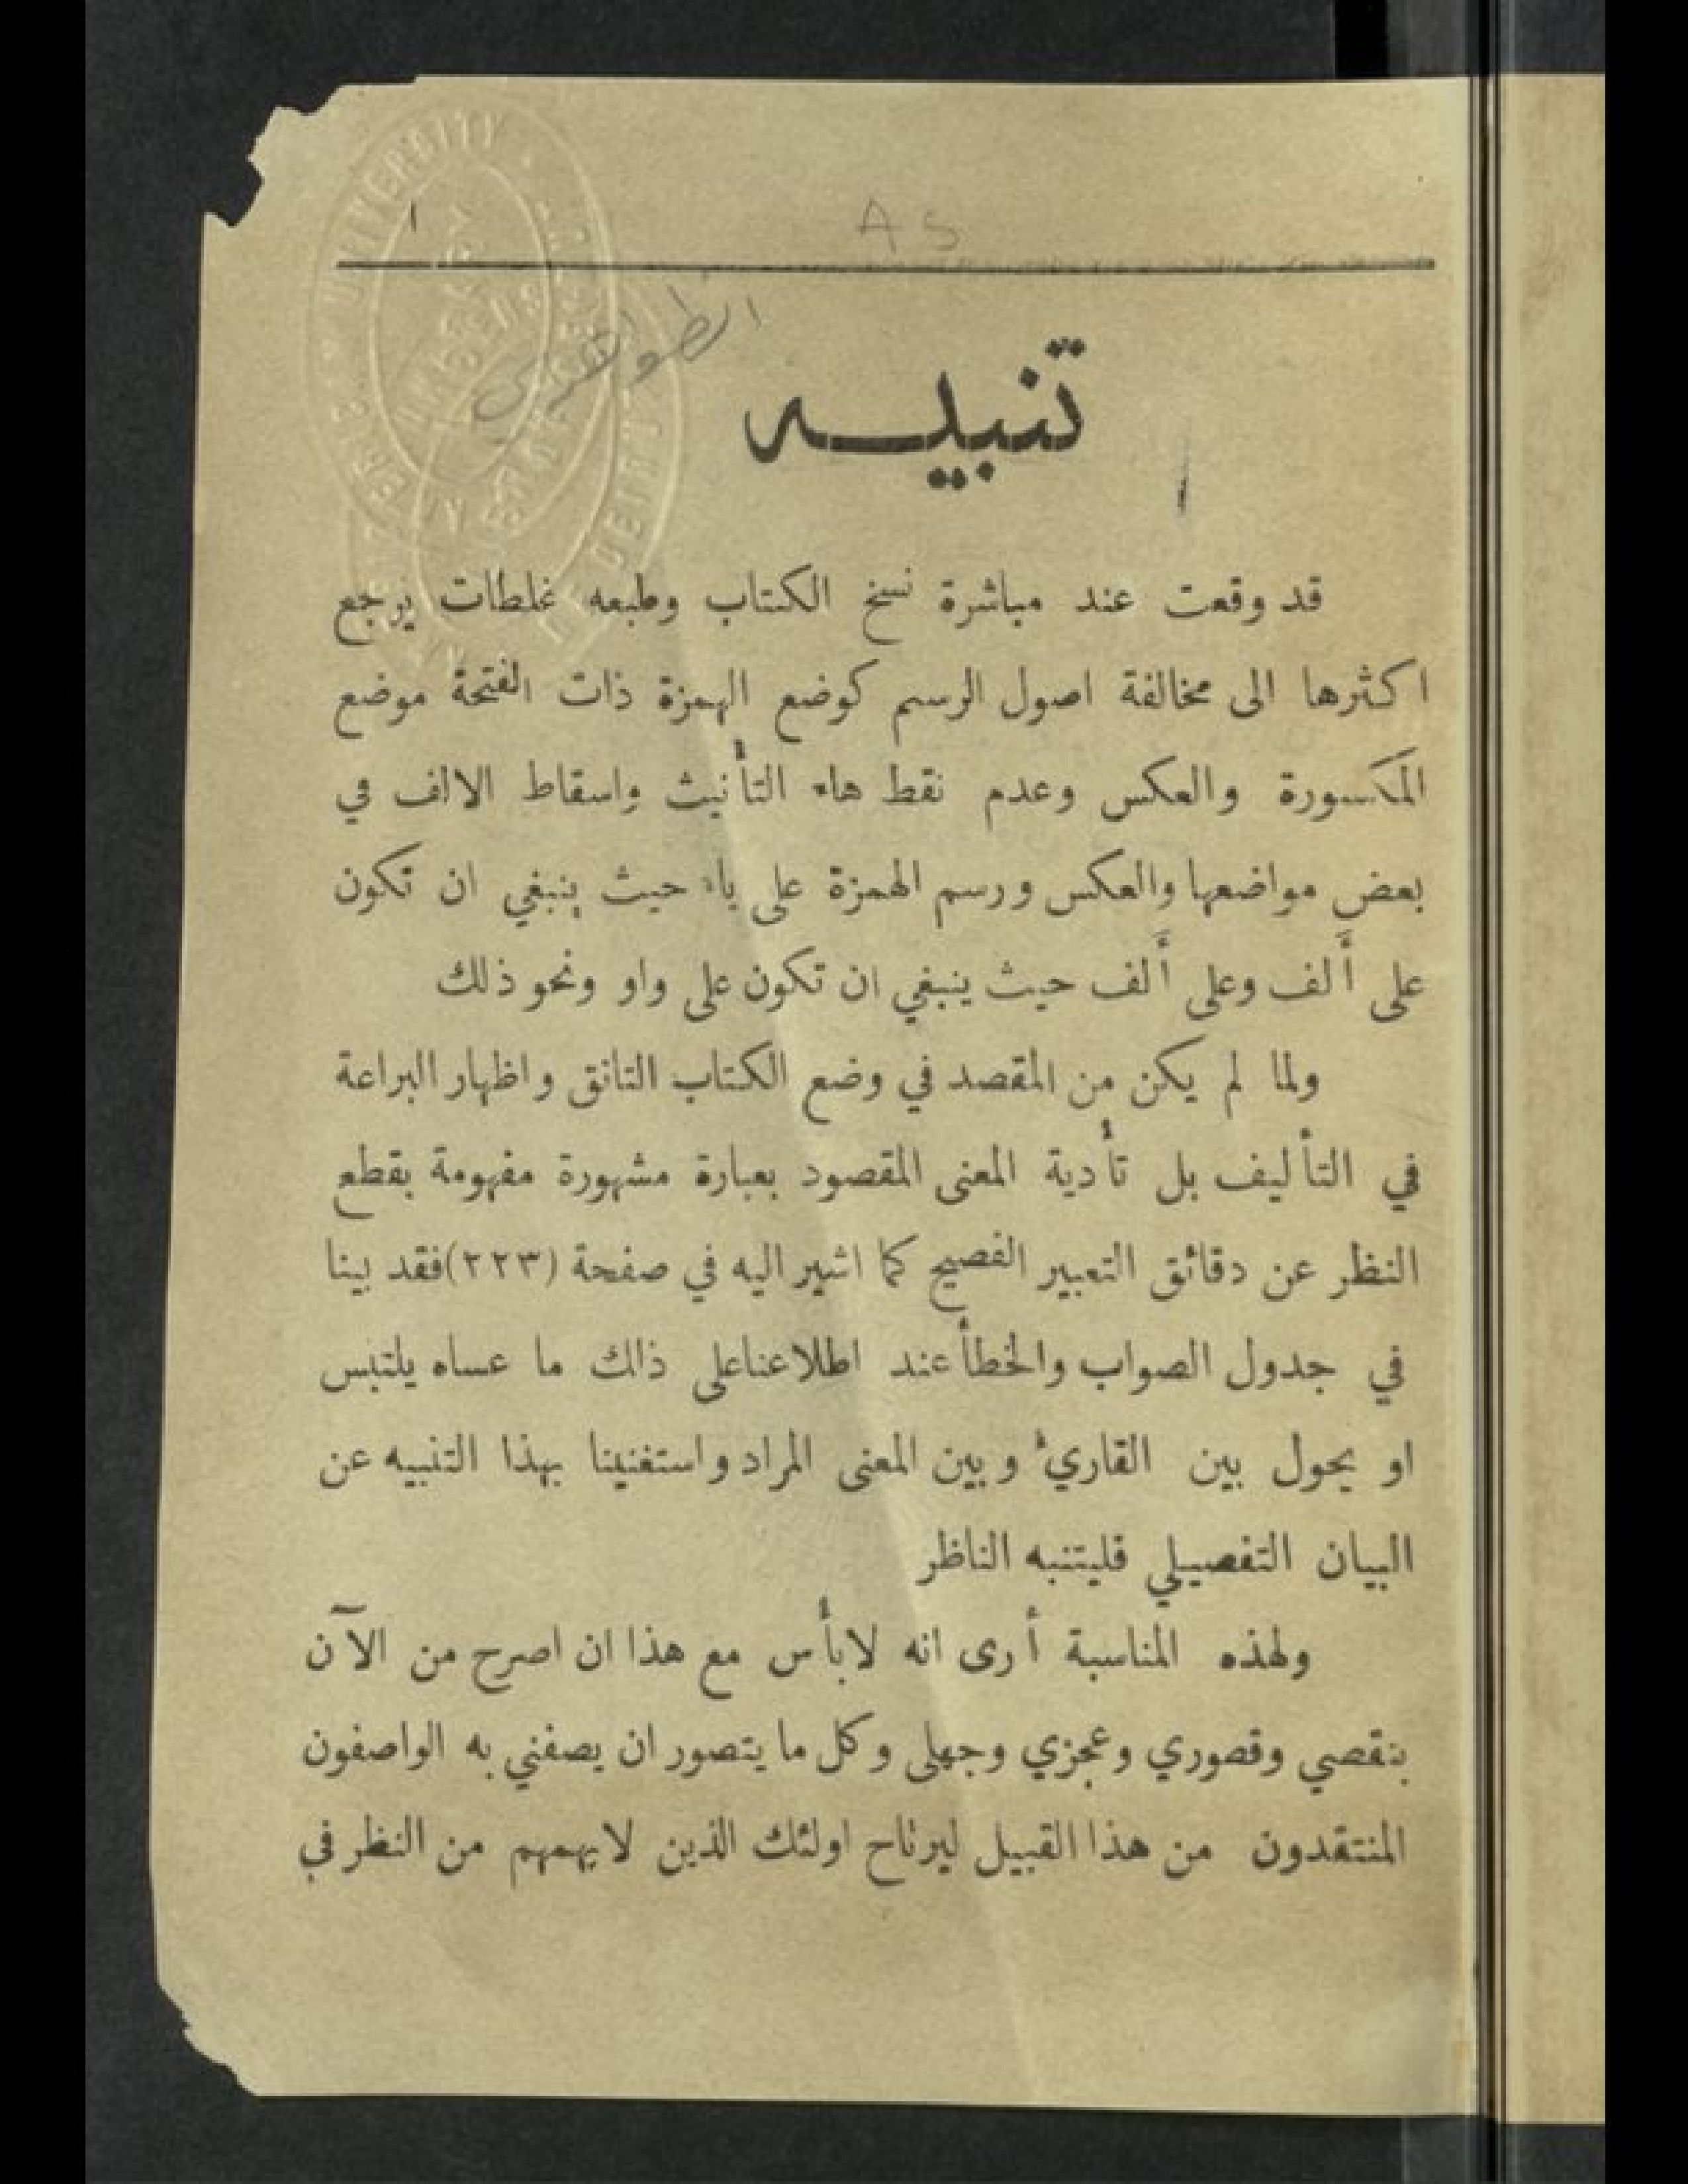 A S
الظواهري
تنبيه
قد وقعت عند مباشرة نسخ الكتاب وطبعه غلطات يرجع
اكثرها الى مخالفة اصول الرسم كوضع الهمزة ذات الفتحة موضع
المكسورة والعكس وعدم نقط هاء التأنيث واسقاط الالف في
بعض مواضعها والعكس ورسم الهمزة على ياء حيث ينبغي ان تكون
على أَلف وعلى أَلف حيث ينبغي ان تكون على واو ونحو ذلك
ولما لم يكن من المقصد في وضع الكتاب التانق واظهار البراعة
في التأليف بل تأدية المعنى المقصود بعبارة مشهورة مفهومة بقطع
النظر عن دقائق التعبير الفصيح كما اشير اليه في صفحة (٢٢٣) فقد بينا
في جدول الصواب والخطأ عند اطلاعنا على ذالك ما عساه يلتبس
او يحول بين القاريء وبين المعنى المراد واستغنينا بهذا التنبيه عن
البيان التفصيلي فليتنبه الناظر
ولهذه المناسبة أرى انه لابأس مع هذا ان اصرح من الآن
بنقصي وقصوري وعجزي وجهلى وكل ما يتصور ان يصفني به الواصفون
المنتقدون من هذا القبيل ليرتاح اولئك الذين لا يهمهم من النظر في